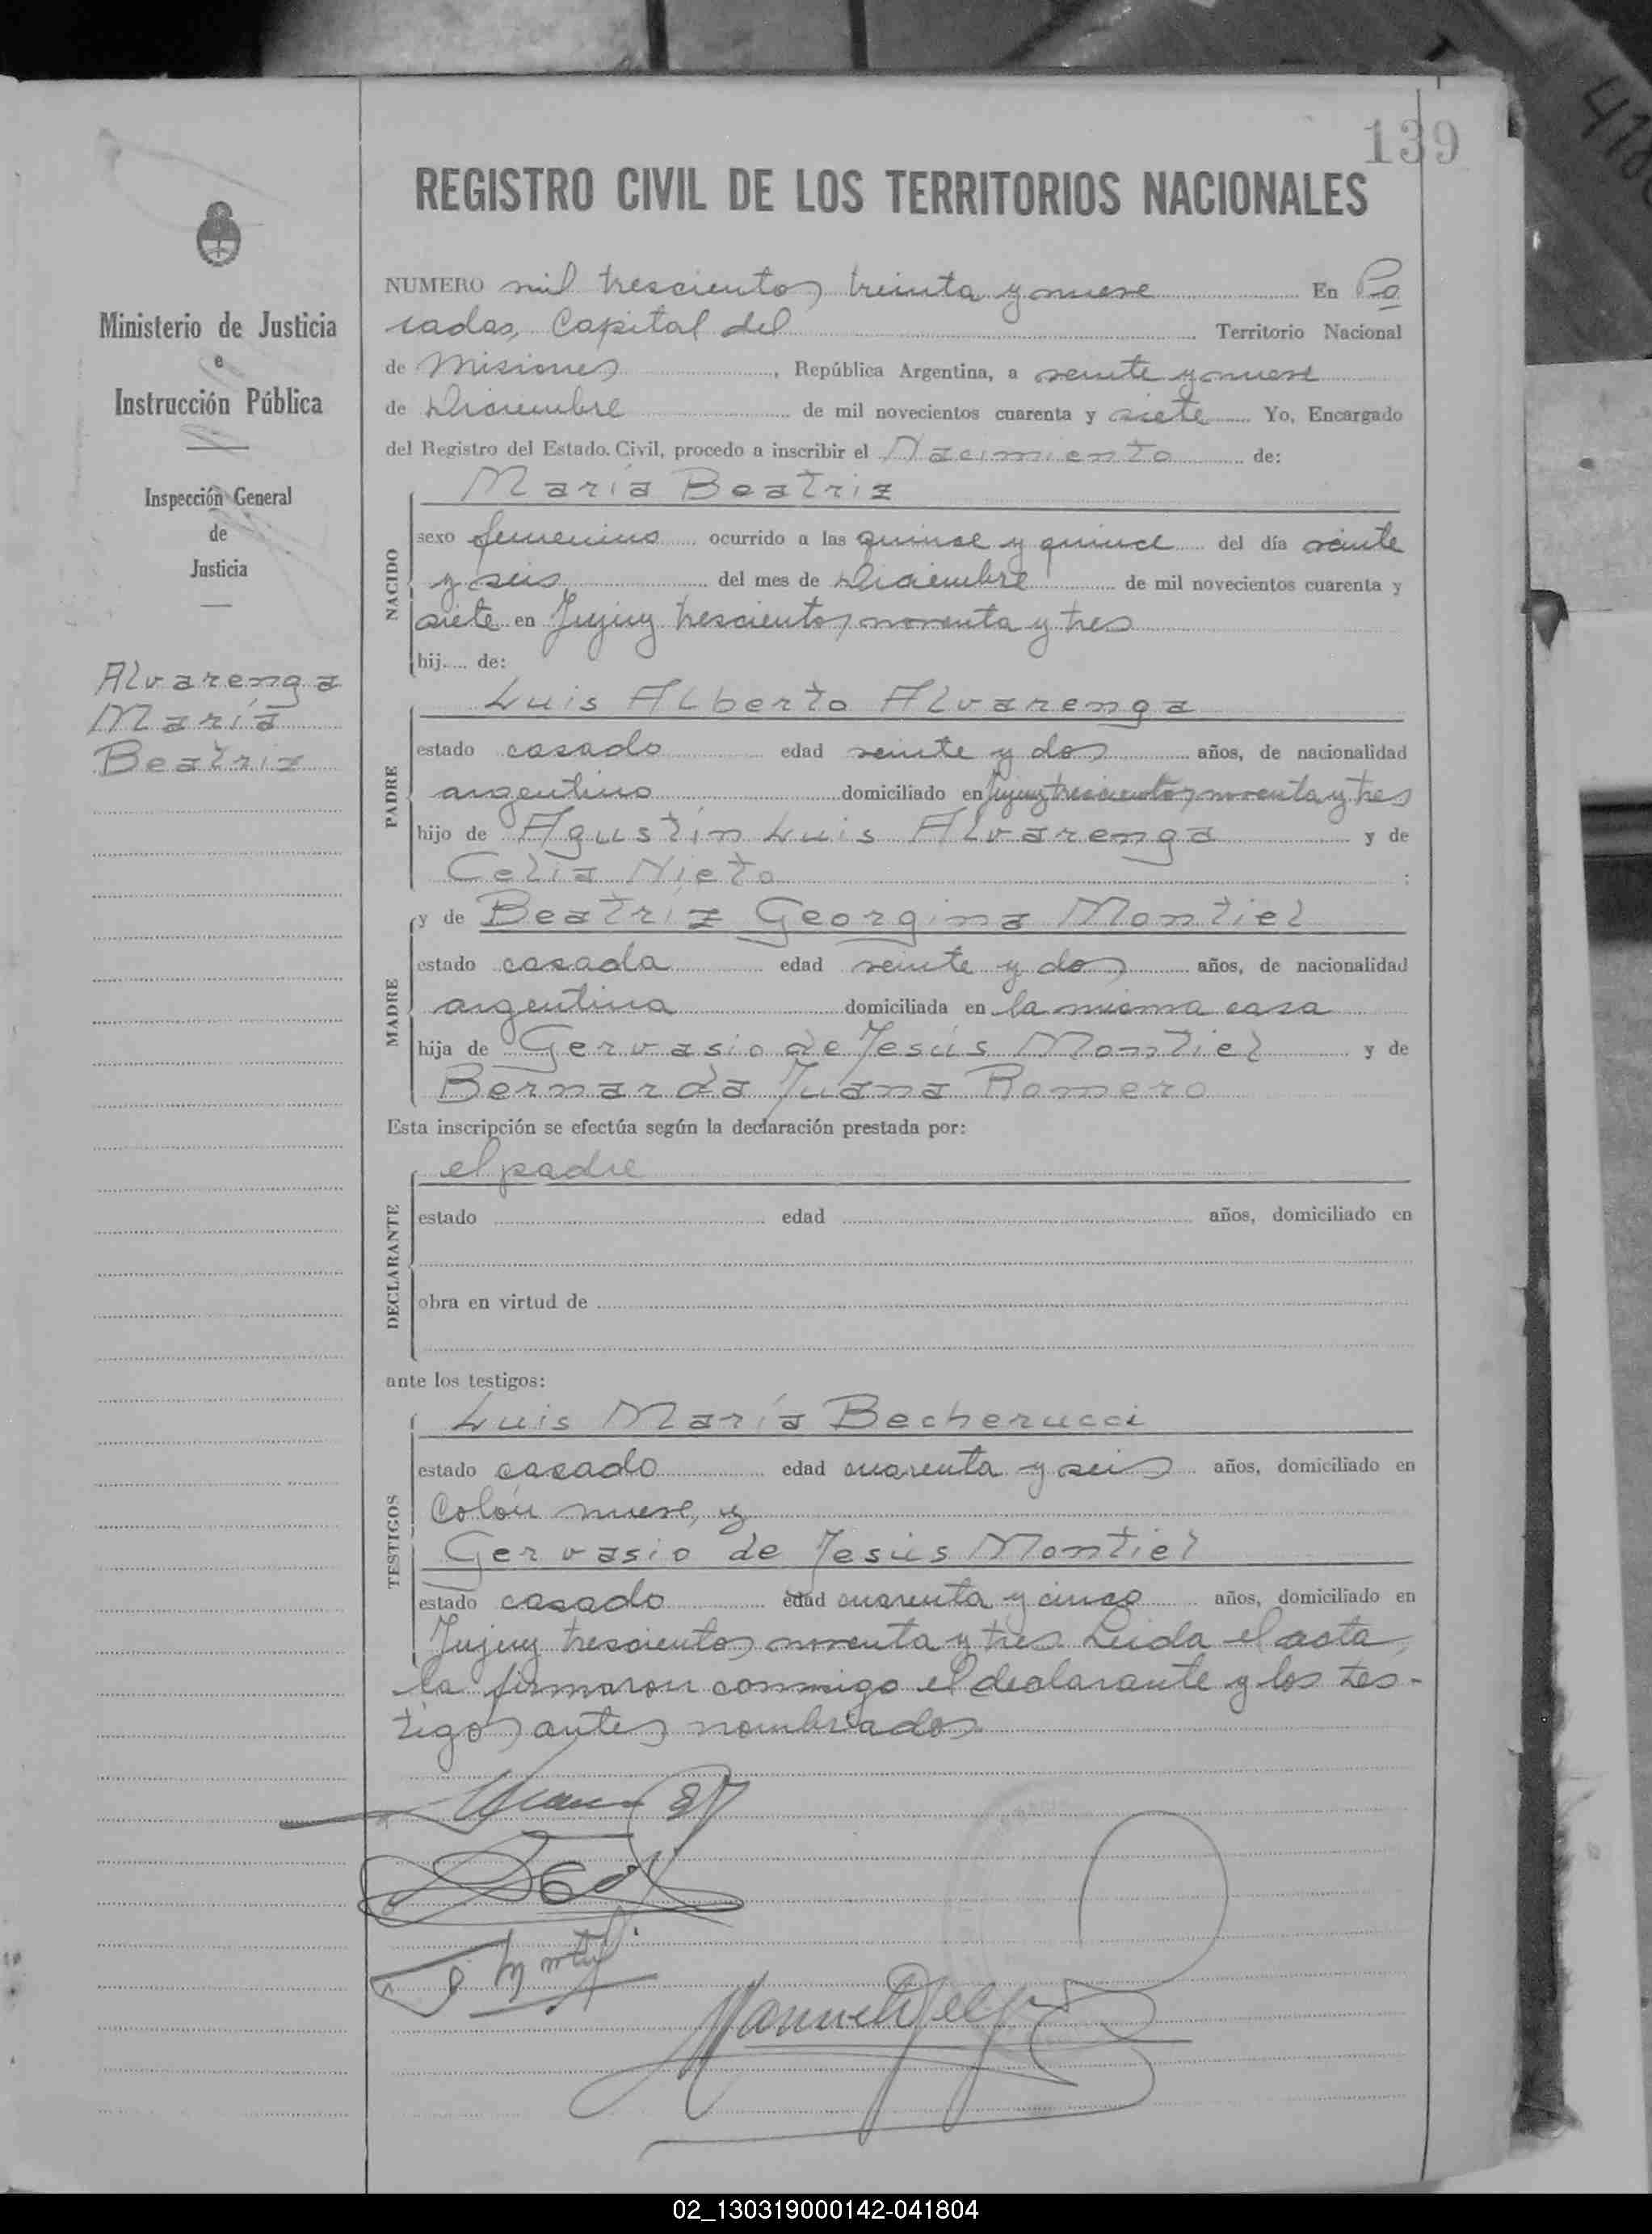 139
REGISTRO CIVIL DE LOS TERRITORIOS NACIONALES
Ministerio de Justicia
e
Instrucción Pública
Inspección General
de
Justicia
Alvarenga
María
Beatriz
NUMERO mil trescientos treinta y nueve En Po
sadas, Capital del Territorio Nacional
de Misiones, República Argentina, a veinte y nueve
de Diciembre de mil novecientos cuarenta y siete Yo, Encargado
del Registro del Estado Civil, procedo a inscribir el Nacimiento de:
NACIDO
María Beatriz
sexo femenino ocurrido a las quince y quince del día veinte
y seis del mes de Diciembre de mil novecientos cuarenta y
siete en Jujuy trescientos noventa y tres
hij.... de:
PADRE
Luis Alberto Alvarenga
estado casado edad veinte y dos años, de nacionalidad
argentino domiciliado en Jujuy trescientos noventa y tres
hijo de Agustín Luis Alvarenga y de
Celia Nieto ;
MADRE
y de Beatriz Georgina Montiel
estado casada edad veinte y dos años, de nacionalidad
argentina domiciliada en la misma casa
hija de Gervasio de Jesús Montiel y de
Bernarda Juana Romero
Esta inscripción se efectúa según la declaración prestada por:
DECLARANTE
el padre
estado edad años, domiciliado en
obra en virtud de
ante los testigos:
TESTIGOS
Luis María Becherucci
estado casado edad cuarenta y seis años, domiciliado en
Colón nueve, y
Gervasio de Jesús Montiel
estado casado edad cuarenta y cinco años, domiciliado en
Jujuy trescientos noventa y tres. Leida el acta,
la firmaron conmigo el declarante y los tes-
tigos antes nombrados
02_130319000142-041804